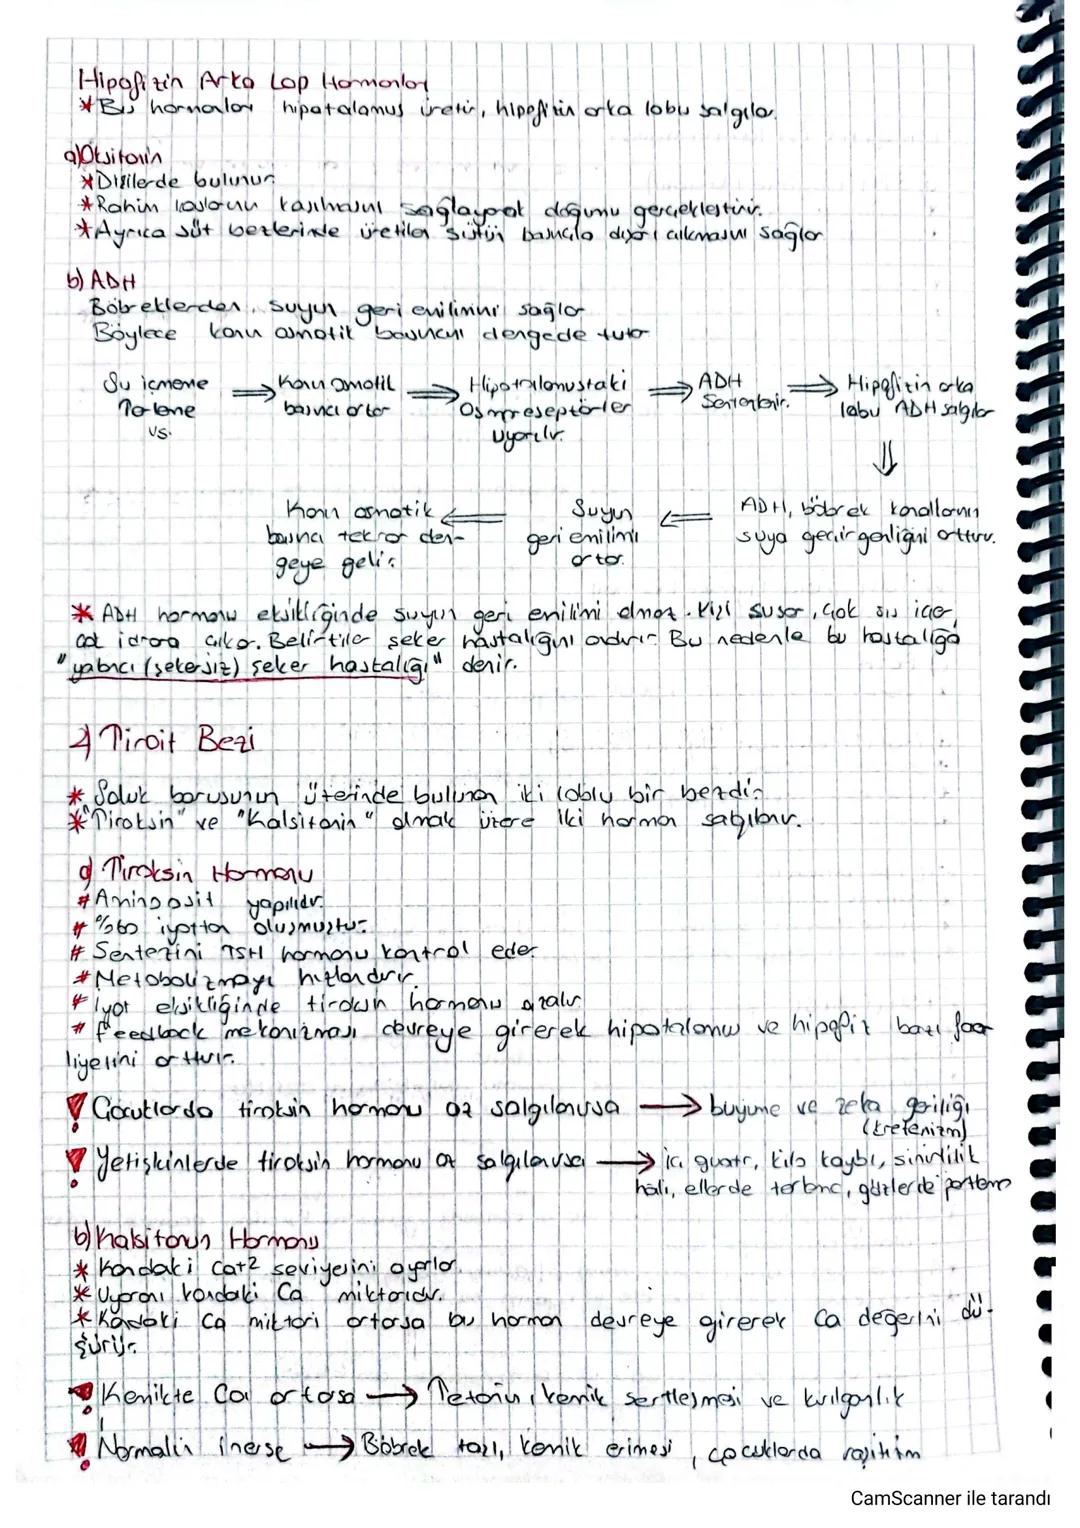 Hipofizin Arka Lop Hormonları
* Bu hormonları hipotalamus üretir, hipofizin arka lobu salgılar.
a) Oksitosin
* Dişilerde bulunur.
* Rahim kaslarının kasılmasını sağlayarak doğumu gerçekleştirir.
* Ayrıca süt bezlerinde üretilen sütün basınçla dışarı çıkmasını sağlar
b) ADH
Böbreklerden suyun geri emilimini sağlar
Böylece kanın osmotik basıncını dengede tutar
Su içmeme ⇒ Kanın osmotik ⇒ Hipotalamustaki ⇒ ADH ⇒ Hipofizin arka
Terleme basıncı artar Osmoreseptörler Sentezlenir. lobu ADH salgılar
vs. uyarılır.
⇓
Kanın osmotik ⇐ Suyun ⇐ ADH, böbrek kanallarının
basıncı tekrar den- geri emilimi suya geçirgenliğini arttırır.
geye gelir. artar.
* ADH hormonu eksikliğinde suyun geri emilimi olmaz. Kişi susar, çok su içer,
çok idrara çıkar. Belirtiler şeker hastalığını andırır. Bu nedenle bu hastalığa
"yabancı (şekersiz) şeker hastalığı" denir.
2) Tiroit Bezi
* Soluk borusunun üzerinde bulunan iki loblu bir bezdir.
* "Tiroksin" ve "Kalsitonin" olmak üzere iki hormon salgılanır.
a) Tiroksin Hormonu
# Aminoasit yapılıdır.
# %60 iyottan oluşmuştur.
# Sentezini TSH hormonu kontrol eder.
# Metabolizmayı hızlandırır.
# İyot eksikliğinde tiroksin hormonu azalır
# feedback mekanizması devreye girerek hipotalamus ve hipofiz bezi faa-
liyetini arttırır.
! Çocuklarda tiroksin hormonu az salgılanırsa → büyüme ve zeka geriliği
(kretenizm)
! Yetişkinlerde tiroksin hormonu az salgılanırsa → iç guatr, kilo kaybı, sinirlilik
hali, ellerde terleme, gözlerde
b) Kalsitonin Hormonu
* Kandaki Ca+2 seviyesini ayarlar.
* Uyaranı kandaki Ca miktarıdır.
* Kandaki Ca miktarı artarsa bu hormon devreye girerek Ca değerini dü-
şürür.
! Kemikte Ca artarsa → Tetani, kemik sertleşmesi ve kırılganlık
! Normalin inerse → Böbrek taşı, kemik erimesi, çocuklarda raşitizm
CamScanner ile tarandı